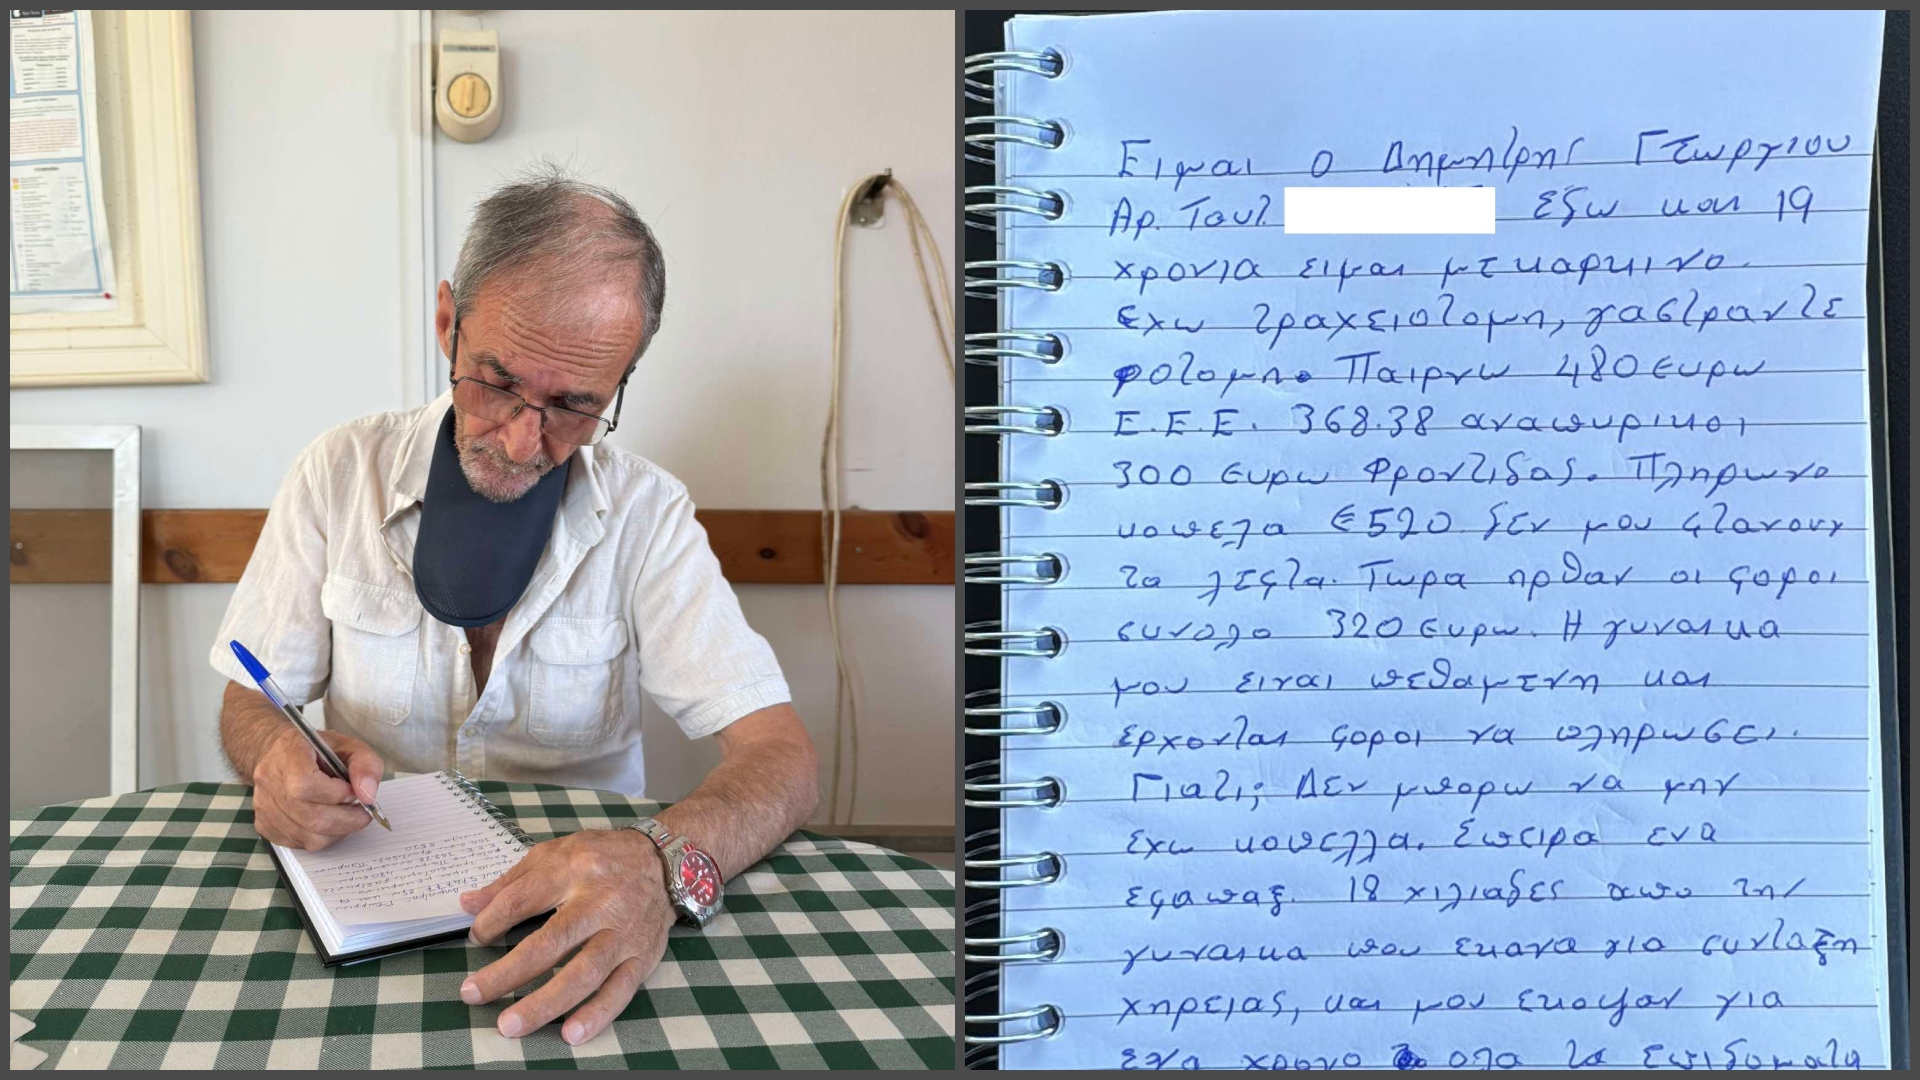 Ειμαι ο Δημητρης Γεωργιου
Αρ. Ταυτ. εδω και 19
χρονια ειμαι με καρκινο.
Εχω τραχειοτομη, γαστραντε
ροτομη. Παιρνω 480 Ευρω
Ε.Ε.Ε. 368.38 αναπυρικοι
300 Ευρω Φροντιδας. Πληρωνο
κοπελα €520 δεν μου φτανουν
τα λεφτα. Τωρα ηρθαν οι φοροι
συνολο 320 Ευρω. Η γυναικα
μου ειναι πεθαμενη και
ερχονται φοροι να πληρωσει.
Γιατι; Δεν μπορω να μην
εχω κοπελλα. Επειρα ενα
εφαπαξ. 18 χιλιαδες απο τη
γυναικα που εκανα για συνταξη
χηρειας, και μου εκοψαν για
ενα χρονο ολα τα επιδοματα